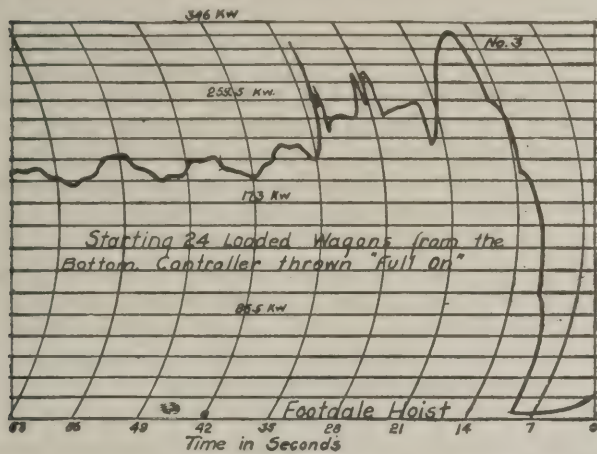 346 Kw
No. 3
259.5 Kw.
173 Kw
Starting 24 Loaded Wagons from the
Bottom. Controller thrown "Full On"
86.5 Kw
Footdale Hoist
63 56 49 42 35 28 21 14 7 0
Time in Seconds